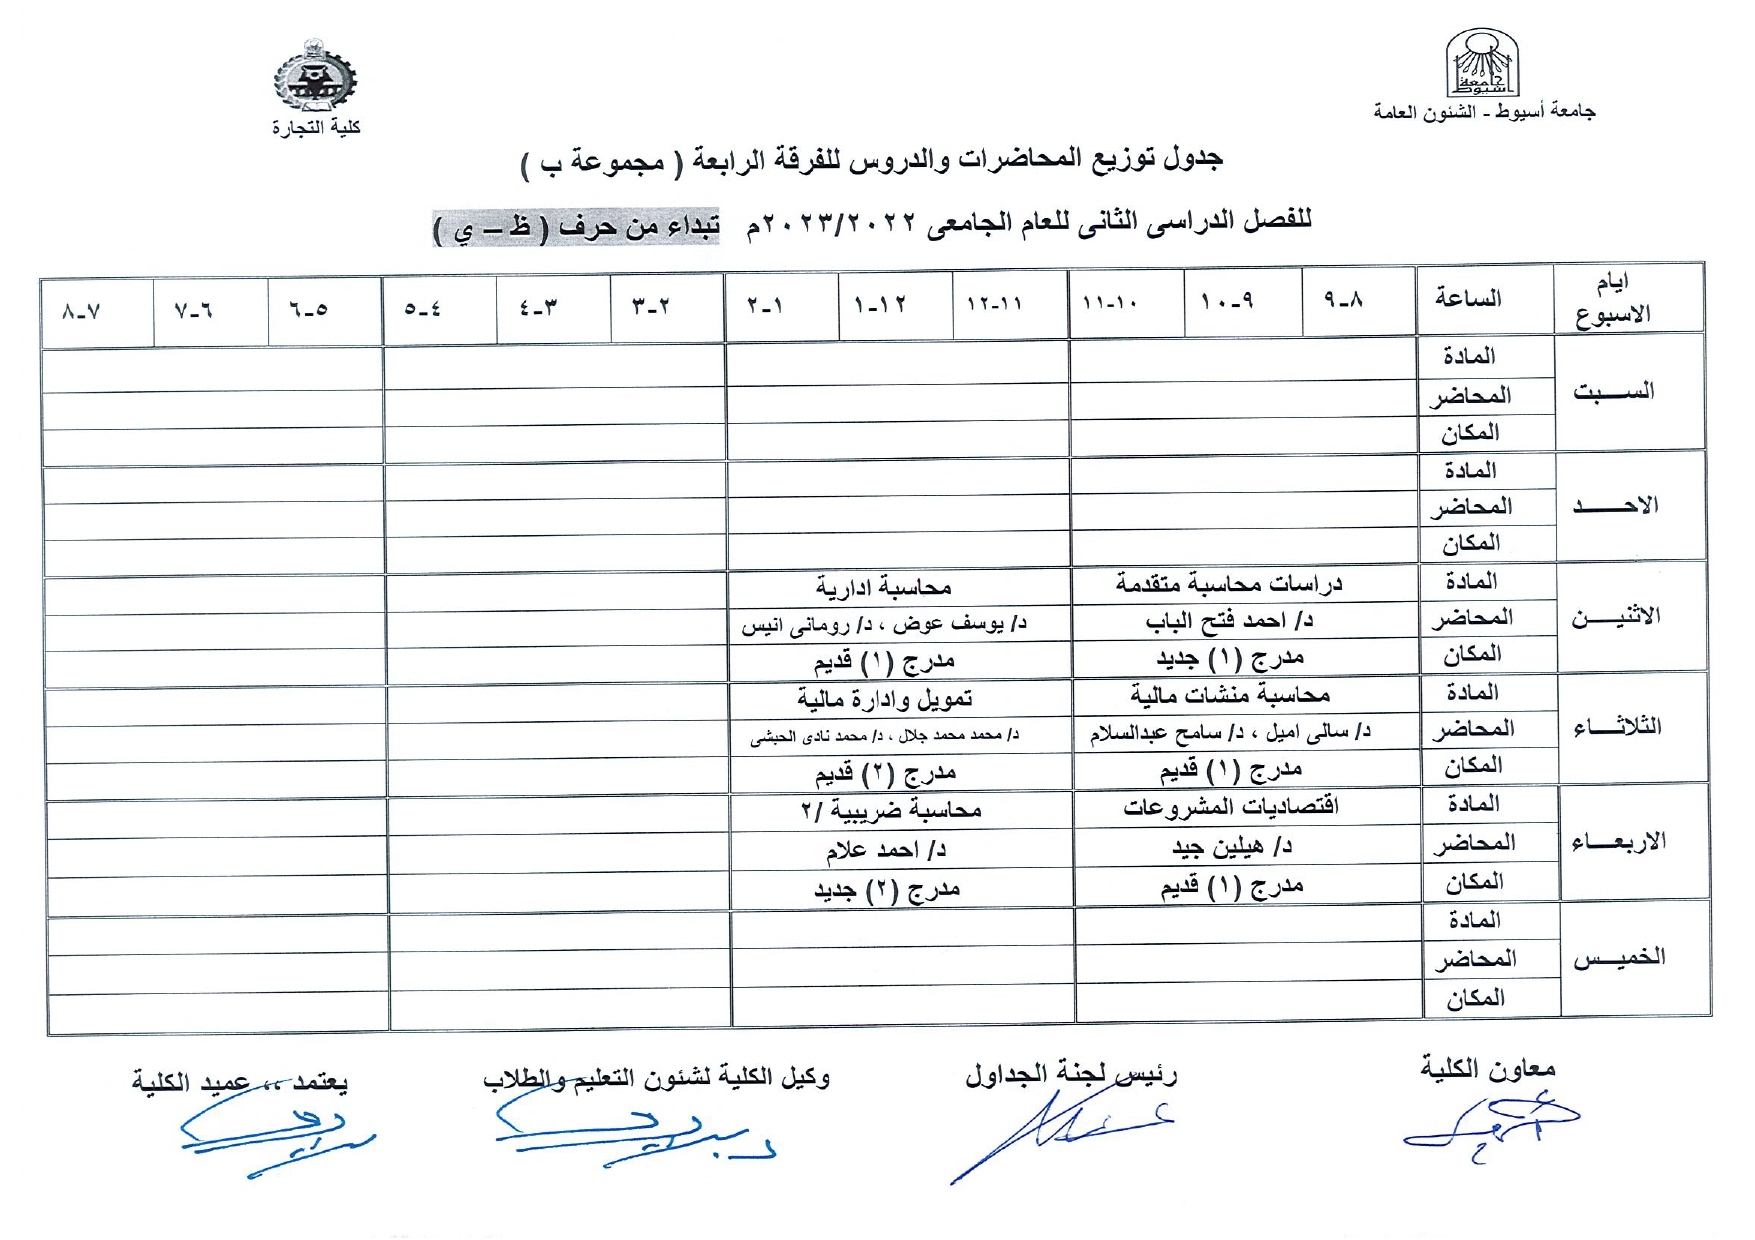 جامعة أسيوط
جامعة أسيوط - الشئون العامة
كلية التجارة
جدول توزيع المحاضرات والدروس للفرقة الرابعة ( مجموعة ب )
للفصل الدراسى الثانى للعام الجامعى ٢٠٢٣/٢٠٢٢م تبداء من حرف ( ظ – ي )
ايام الاسبوع الساعة ٨-٩ ٩-١٠ ١٠-١١ ١١-١٢ ١٢-١ ١-٢ ٢-٣ ٣-٤ ٤-٥ ٥-٦ ٦-٧ ٧-٨
السبت المادة
المحاضر
المكان
الاحد المادة
المحاضر
المكان
الاثنين المادة دراسات محاسبة متقدمة محاسبة ادارية
المحاضر د/ احمد فتح الباب د/ يوسف عوض ، د/ رومانى انيس
المكان مدرج (١) جديد مدرج (١) قديم
الثلاثاء المادة محاسبة منشات مالية تمويل وادارة مالية
المحاضر د/ سالى اميل ، د/ سامح عبدالسلام د/ محمد محمد جلال ، د/ محمد نادى الحبشى
المكان مدرج (١) قديم مدرج (٢) قديم
الاربعاء المادة اقتصاديات المشروعات محاسبة ضريبية /٢
المحاضر د/ هيلين جيد د/ احمد علام
المكان مدرج (١) قديم مدرج (٢) جديد
الخميس المادة
المحاضر
المكان
معاون الكلية رئيس لجنة الجداول وكيل الكلية لشئون التعليم والطلاب يعتمد ،، عميد الكلية